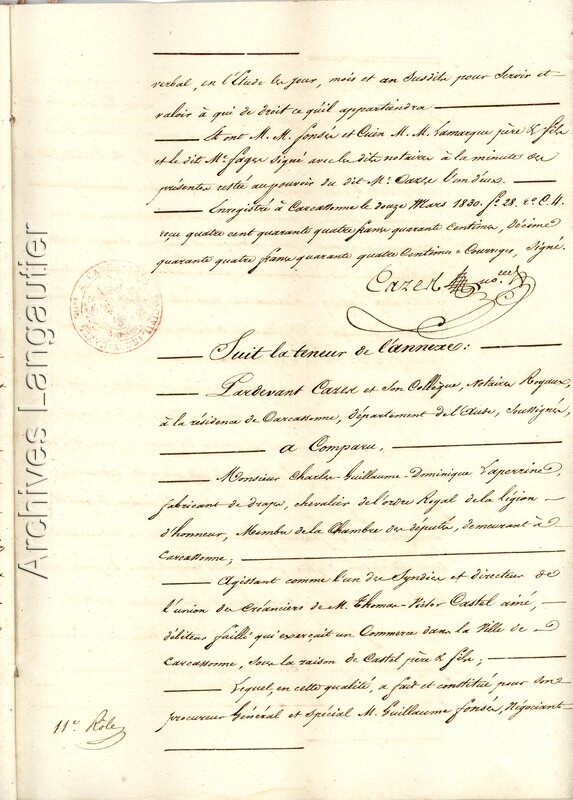 verbal, en l'Etude les jour, mois et an susdits pour servir et
valoir à qui de droit ce qu'il appartiendra
Et ont M. M. fonsés et Cuin M. M. Lamarque père & fils
et le dit Me. fages signé avec les dits notaires à la minute des
présentes restée au pouvoir du dit Me. Cazes l'un d'eux.
Enregistré à Carcassonne le douze Mars 1830. fo. 28. ro. C. 4.
reçu quatre cent quarante quatre francs quarante Centimes, décime
quarante quatre francs quarante quatre Centimes = Courrèges, signé.
Cazes no.re
Suit la teneur de l'annexe:
Pardevant Cazes et son Collègue, Notaires Royaux,
à la résidence de Carcassonne, département de l'Aude, soussignés,
a Comparu,
Monsieur Charles-Guillaume-Dominique Laperrine,
fabricant de draps, chevalier de l'ordre Royal de la légion
d'honneur, Membre de la Chambre des députés, demeurant à
Carcassonne;
Agissant comme l'un des Syndics et directeur de
l'union des Créanciers de M. Thomas-Victor Castel ainé,
débiteur failli qui exerçait un Commerce dans la Ville de
Carcassonne, sous la raison de Castel père & fils;
Lequel, en cette qualité, a fait et constitué pour son
procureur Général et spécial M. Guillaume fonsés, Négociant
11e. Rôle
Archives Langautier